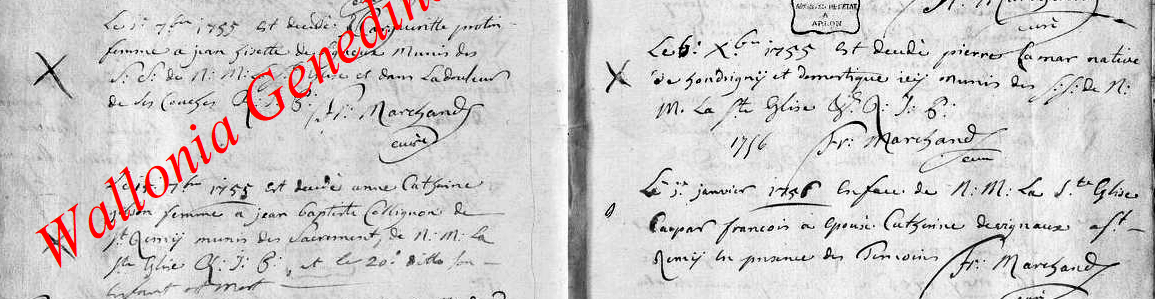 Le 1r 7bre 1755 est decedé protin
femme a jean gisette de munis des
S: S: de N: M: Eglise et dans La douleur
de ses Couches R: I: P:
fr: Marchand
curé
Le 15 7bre 1755 est decedé anne Catherine
femme a jean baptiste Collignon de
St Remij munis des Sacrement, de N: M: La
Ste Eglise R: I: P: et le 20e ditto son
enfant est mort
Wallonia Genedine
ARCHIVES DE L'ETAT
A
ARLON
fr: Marchand
curé
Le 6: Xbre 1755 est decedé pierre Lamar native
de hondrignij et domestique icij munis des S: S: de N:
M. La Ste Eglise R: I: P:
1756 fr: Marchand
curé
Le janvier 1756 En face de N: M: La Ste Eglise
Caspar françois a Epousé Catherine devignaux a St
Remij En presence des Temoins fr: Marchand
curé